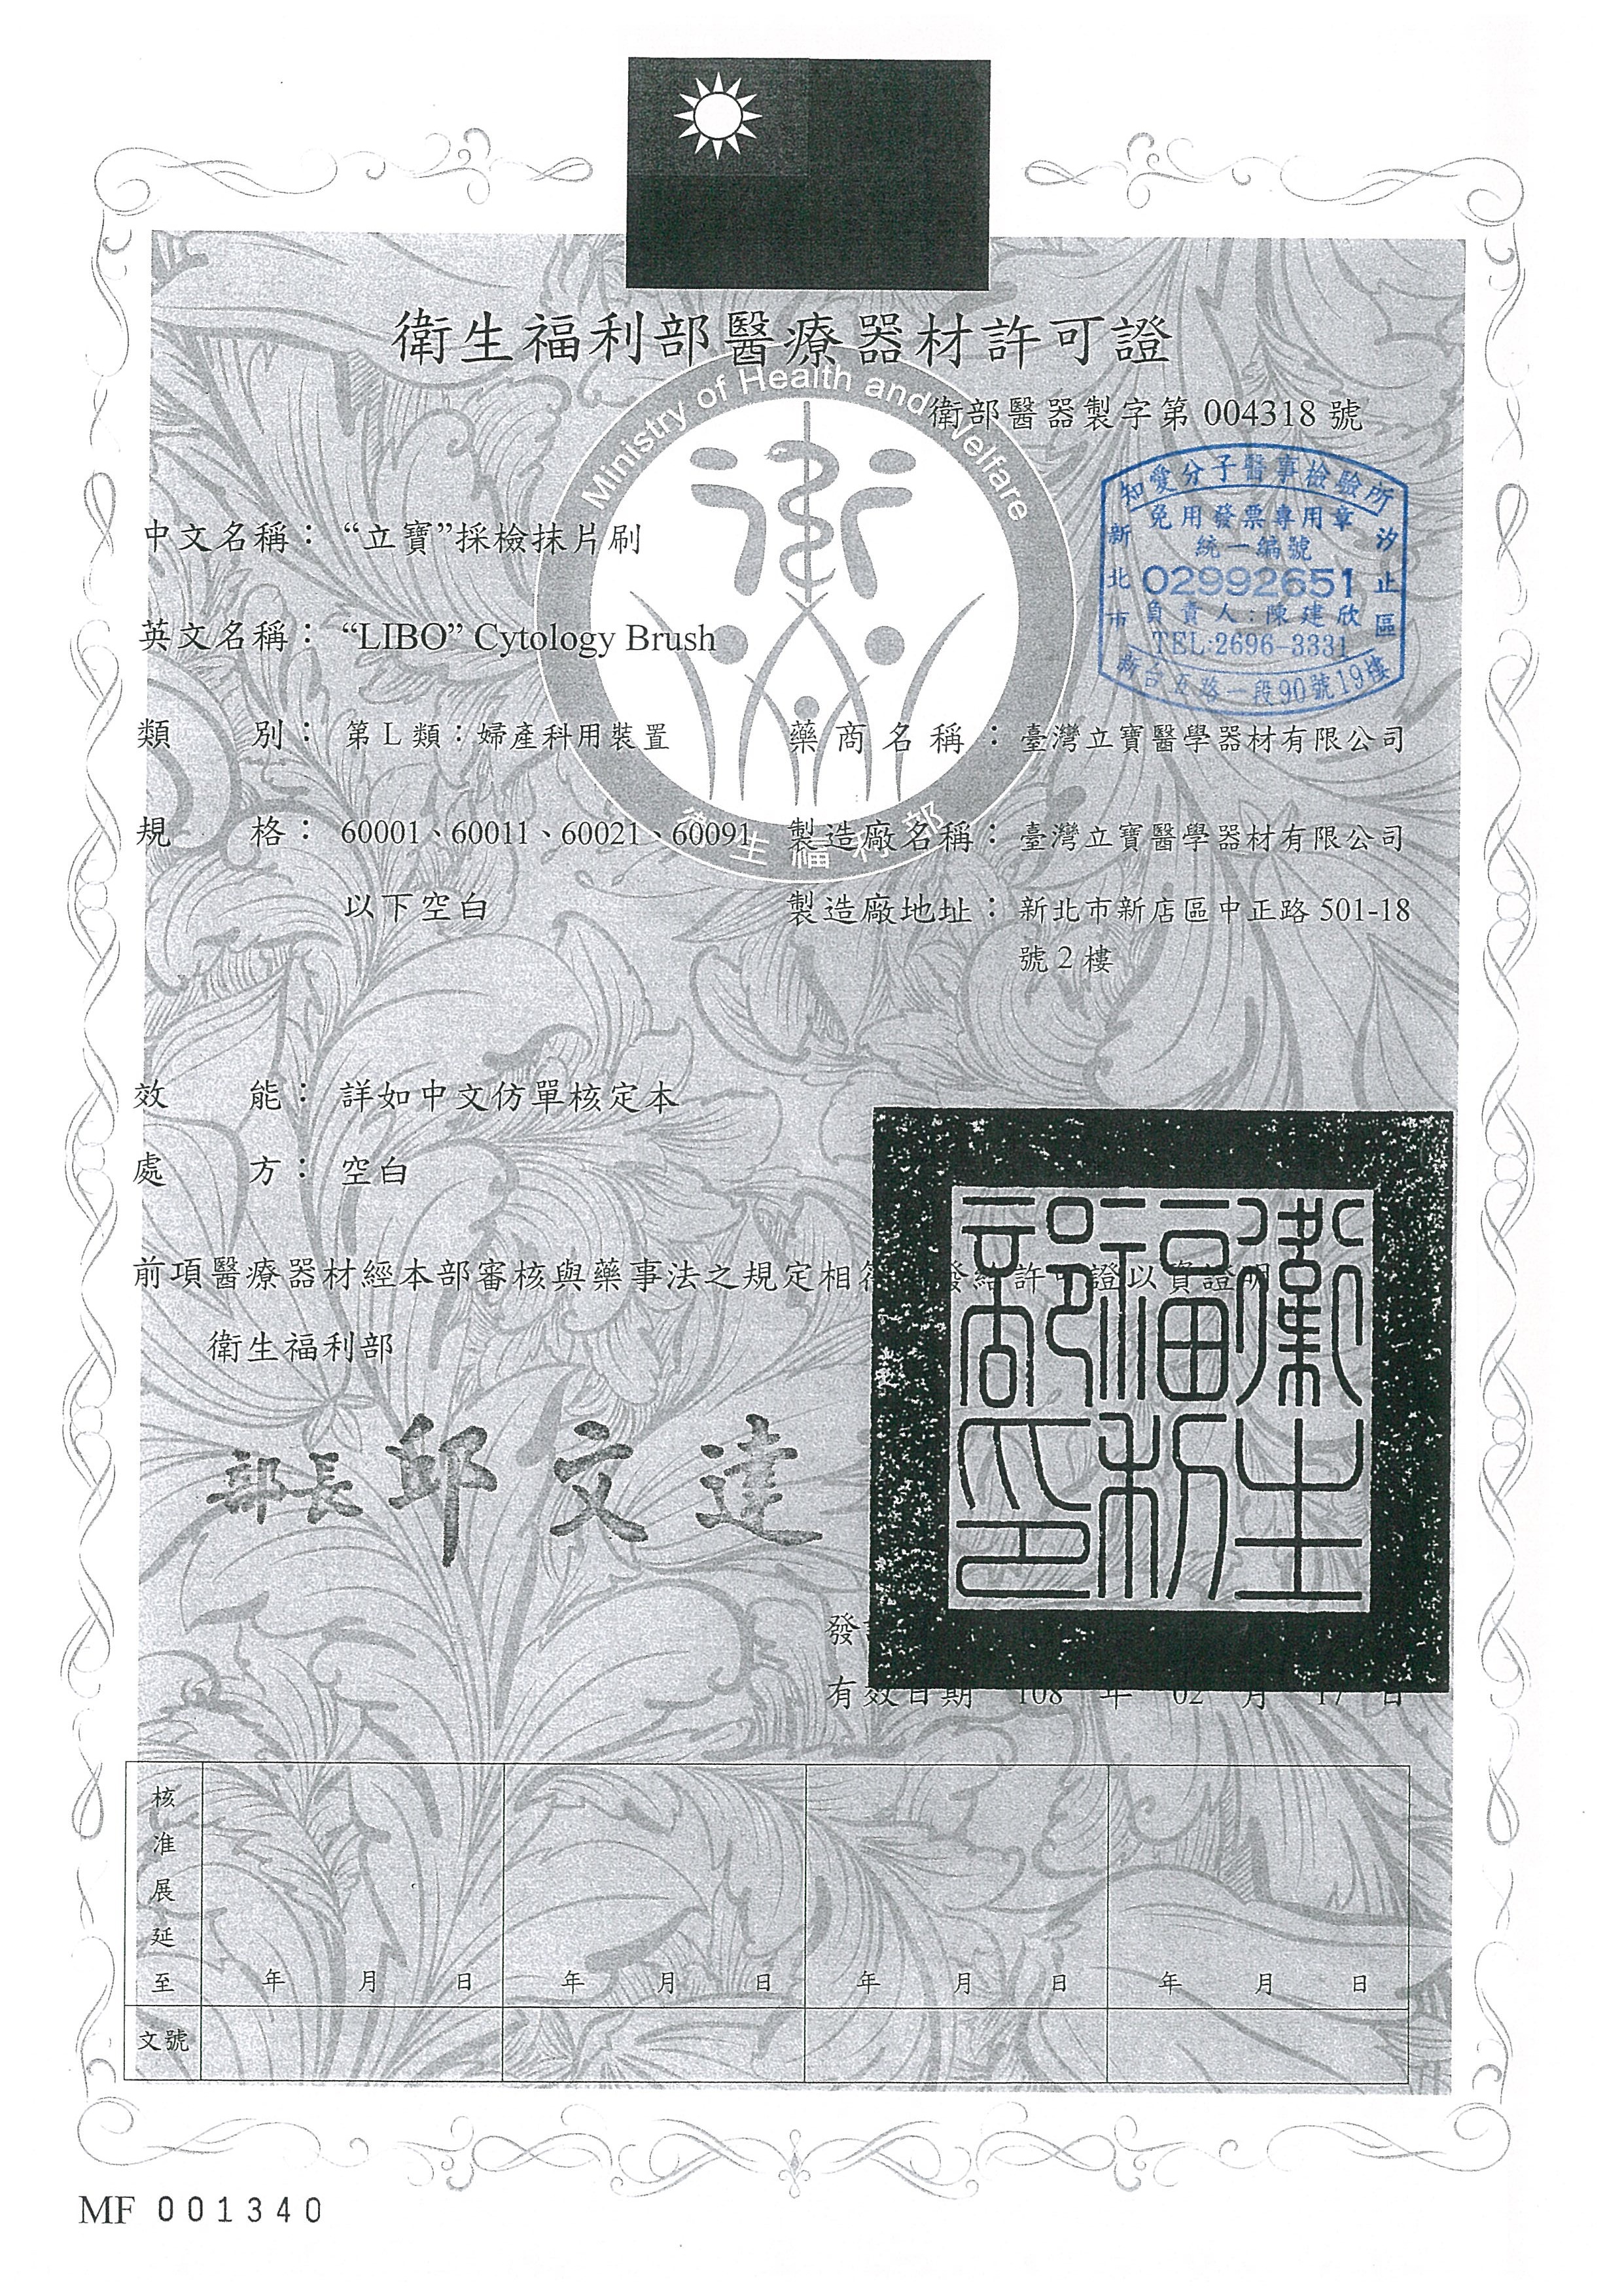 衛生福利部醫療器材許可證
Ministry of Health and Welfare
衛生福利部
衛部醫器製字第 004318 號
知愛分子醫事檢驗所
免用發票專用章
統一編號
02992651
負責人:陳建欣
TEL:2696-3331
新北市
汐止區
新台五路一段90號19樓
中文名稱：“立寶”採檢抹片刷
英文名稱：“LIBO” Cytology Brush
類別：第 L 類：婦產科用裝置
藥商名稱：臺灣立寶醫學器材有限公司
規格：60001、60011、60021、60091
製造廠名稱：臺灣立寶醫學器材有限公司
以下空白
製造廠地址：新北市新店區中正路 501-18
號 2 樓
效能：詳如中文仿單核定本
處方：空白
前項醫療器材經本部審核與藥事法之規定相符 發給許可證以資證明
衛生福利部
部長 邱文達
衛生福利部印
發
有效日期 108 年 02 月 17 日
核准展延至
年 月 日
年 月 日
年 月 日
年 月 日
文號
MF 001340